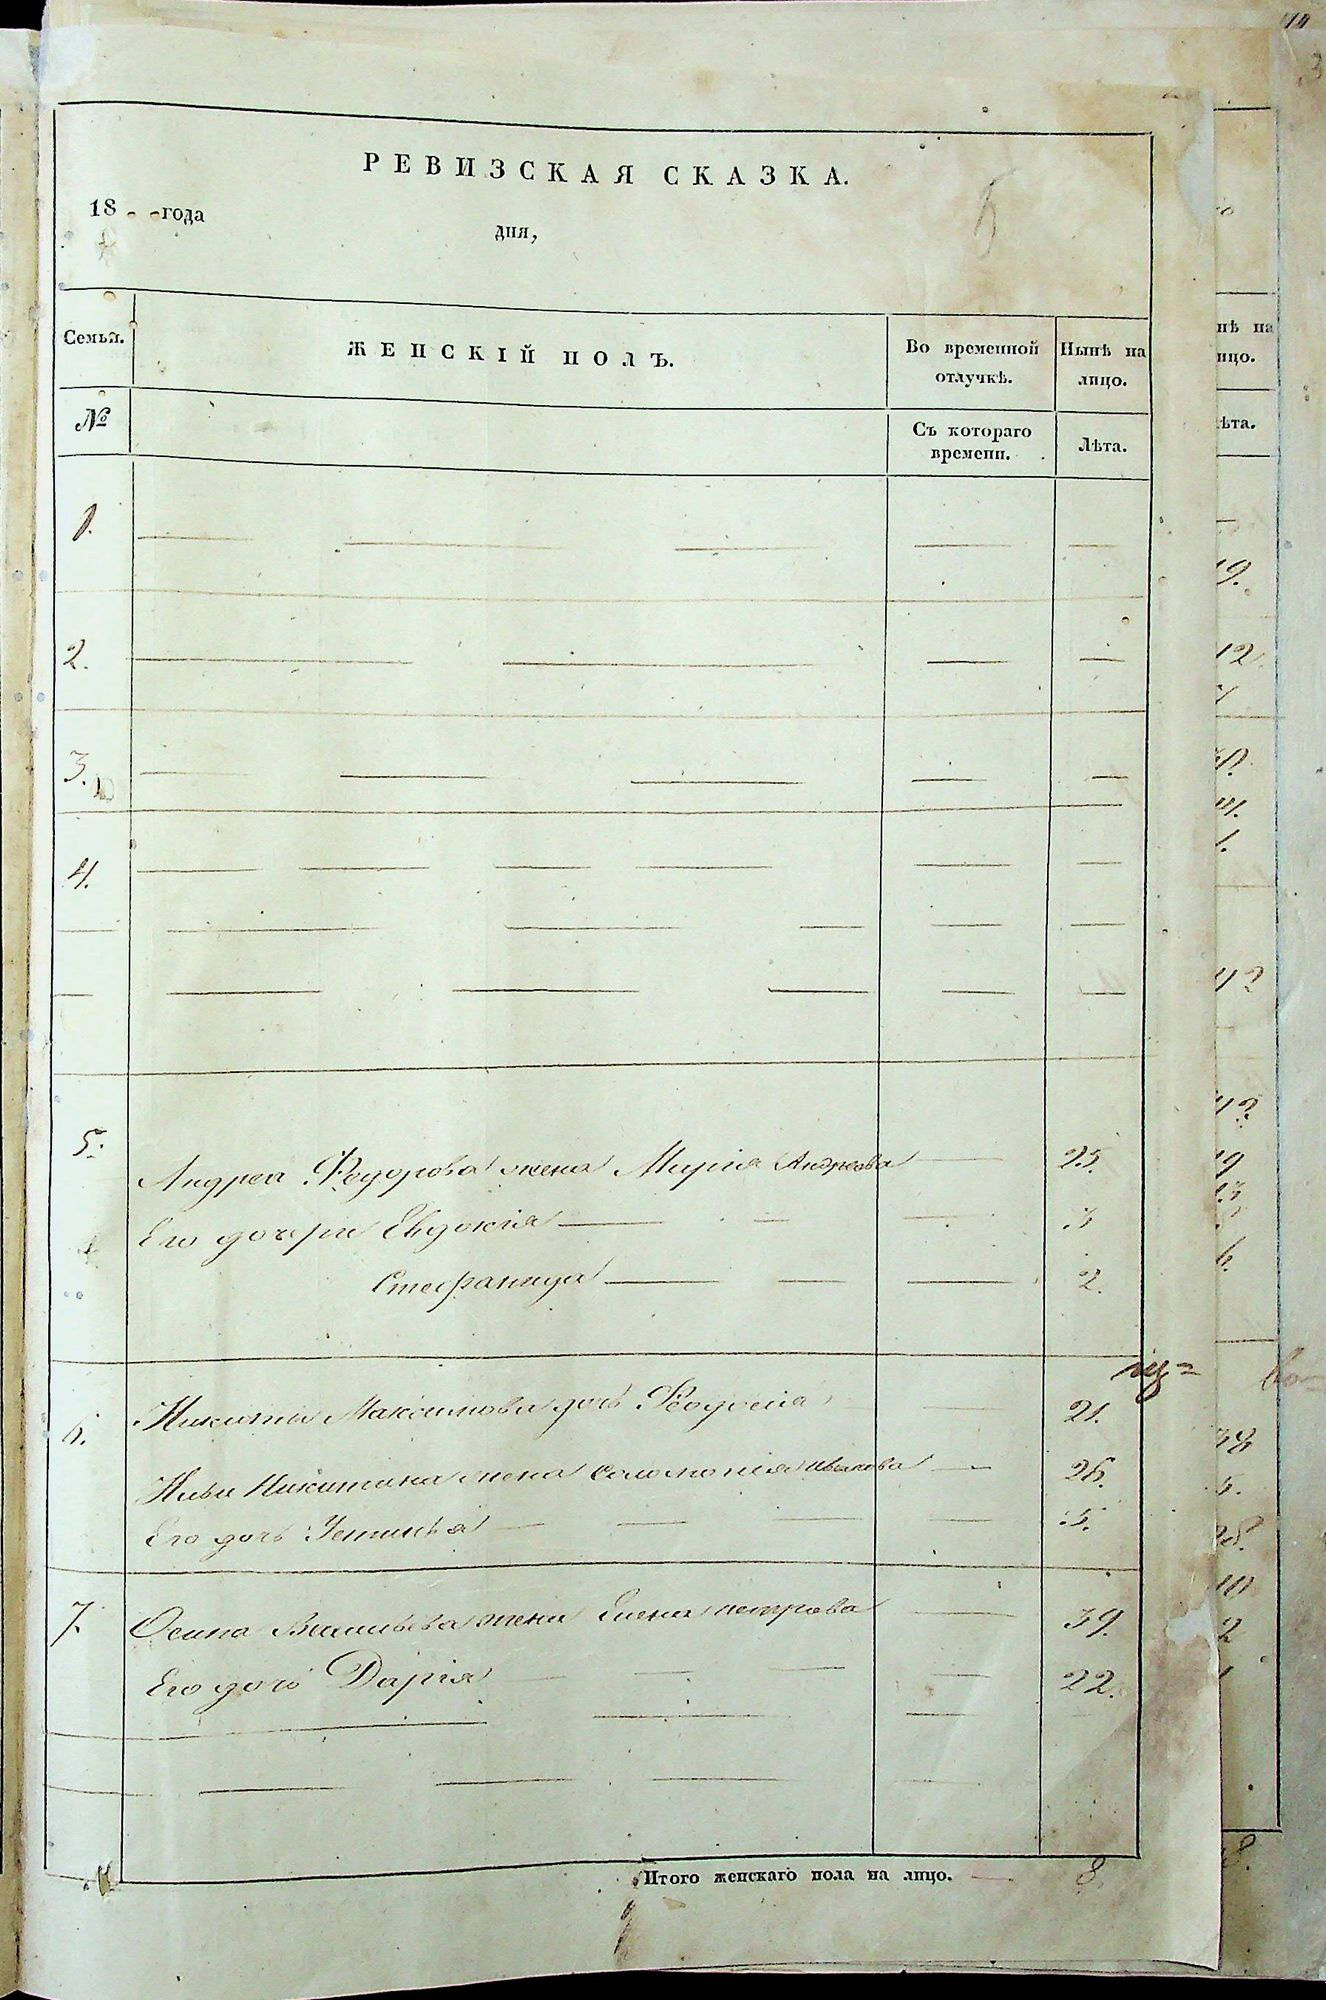 РЕВИЗСКАЯ СКАЗКА.
18 года
дня,
Семьи.
ЖЕНСКІЙ ПОЛЪ.
Во временной отлучкѣ.
Нынѣ на лицо.
№
Съ котораго времени.
Лѣта.
1.
2.
3.
4.
5. Андрея Федорова жена Марія Андреева 25.
Его дочери Евдокія 3
Стефанида 2.
6. Никиты Максимова дочь Феодосія 21.
жена Соломонія Иванова 26.
Его дочь Устинья 5.
7. Осипа Васильева жена Елена Петрова 39.
Его дочь Дарія 22.
Итого женскаго пола на лицо. 8.